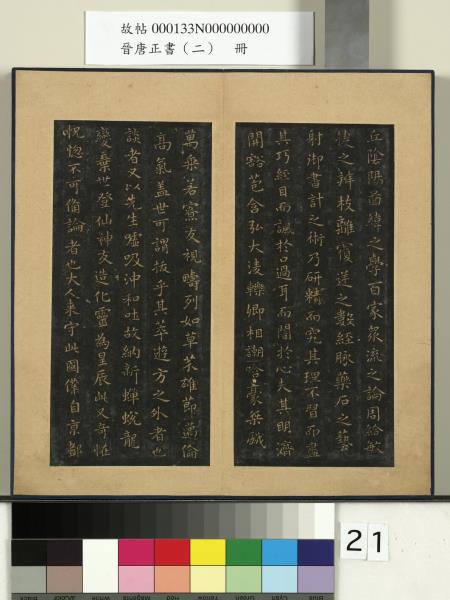 故帖 000133N000000000
晉唐正書（二） 冊
丘陰陽圖緯之學百家眾流之論周給敏
捷之辨枝離覆逆之數經脉藥石之藝
射御書計之術乃研精而究其理不習而盡
其巧經目而諷於口過耳而闇於心夫其明濟
開豁苞含弘大淩轢卿相謿哈豪桀戲
萬乘若寮友視疇列如草芥雄節邁倫
高氣蓋世可謂拔乎其萃遊方之外者也
談者又以先生噓吸沖和吐故納新蟬蛻龍
變棄世登仙神友造化靈為星辰此又奇怪
怳惚不可備論者也大人來守此國僕自京都
21
Black
3/Color
White
Magenta
Red
Yellow
Green
Cyan
Blue